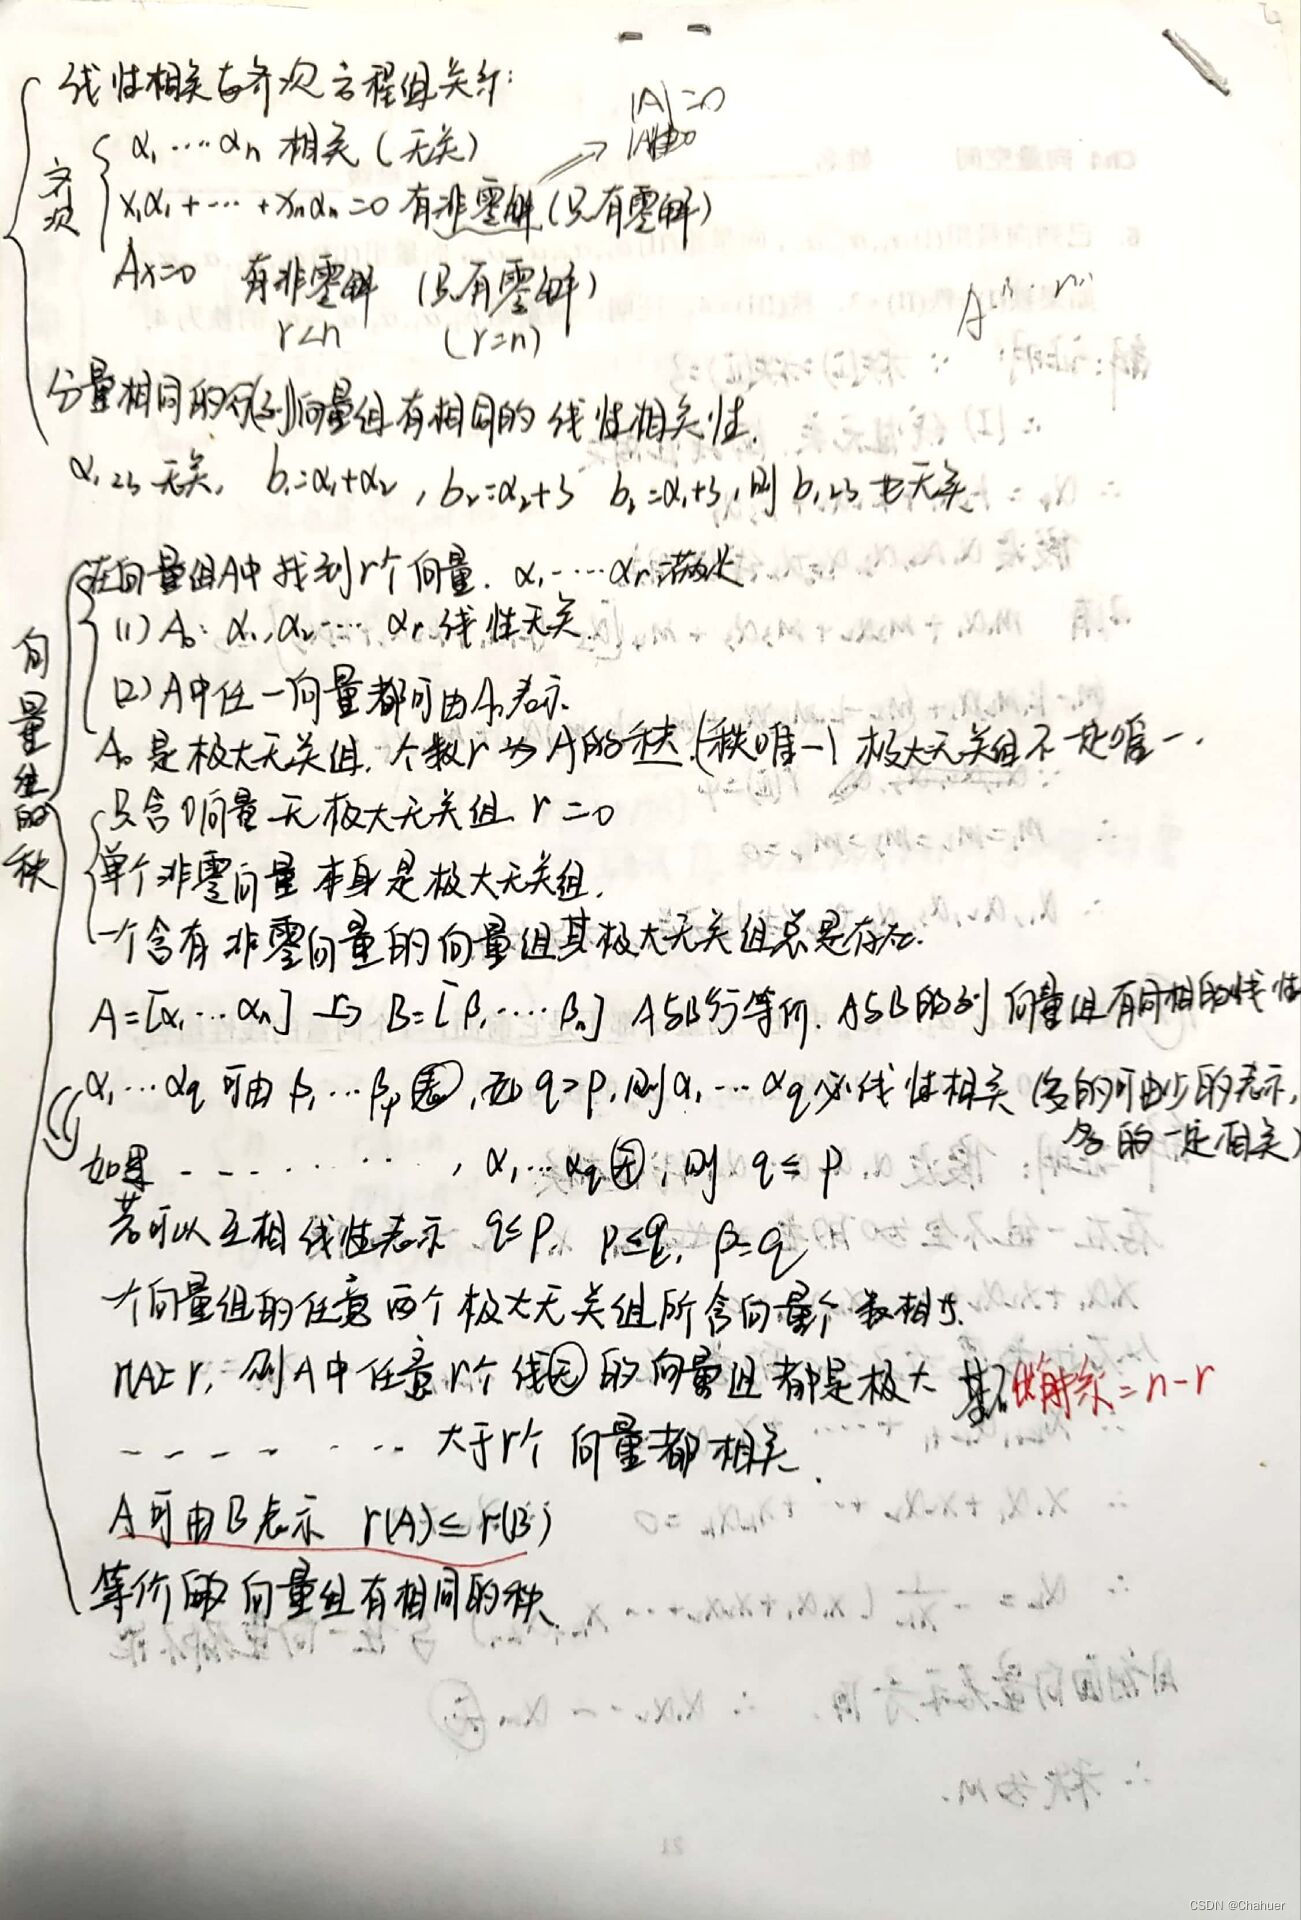 线性相关与齐次方程组关系:
|A|=0
齐次
α₁····αn 相关 (无关)
x₁α₁+···+xnαn=0 有非零解 (只有零解)
Ax=0 有非零解 (只有零解)
r<n (r=n)
分量相同的行(列)向量组有相同的线性相关性.
α₁,₂₃ 无关, b₁=α₁+α₂, b₂=α₂+3 b₃=α₁+3, 则 b₁₂₃ 也无关
向量组的秩
在向量组A中找到r个向量. α₁·····αr 满足
(1) A₀: α₁,α₂···· αr 线性无关.
(2) A中任一向量都可由A₀表示.
A₀ 是极大无关组. 个数r为A的秩.(秩唯一) 极大无关组不一定唯一.
只含0向量 无极大无关组 r=0
单个非零向量 本身是极大无关组.
一个含有非零向量的向量组其极大无关组总是存在.
A=[α₁···αn] 与 B=[β₁····βn] A与B行等价. A与B的列 向量组有相同的线性
α₁···αq 可由 β₁···βp 表, 而 q>p, 则 α₁···αq 必线性相关 (多的可由少的表示,
多的一定相关)
如果 - - - · · · · · · , α₁···αq 无, 则 q≤p
若可以互相线性表示 q≤p, p≤q, p=q
一个向量组的任意两个极大无关组所含向量个数相等.
r(A)=r, 则A中任意r个线无的向量组都是极大 基础解系=n-r
- - - - - - - 大于r个 向量都相关.
A可由B表示 r(A)≤r(B)
等价的 向量组有相同的秩.
21
CSDN @Chahuer